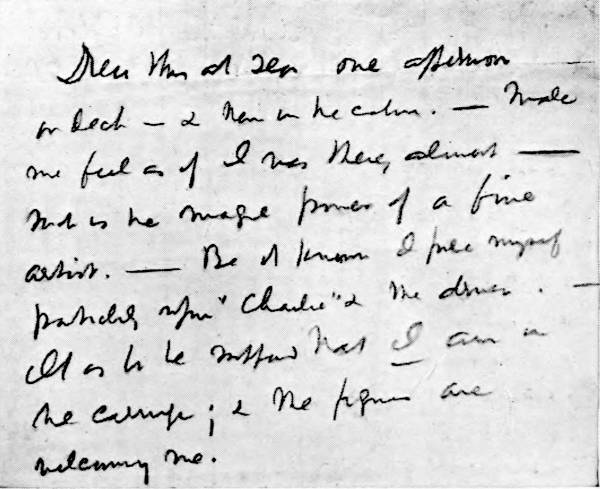 Drew this at sea one afternoon
on deck — & then in the cabin. — Made
me feel as if I was there, almost —
Such is the magic power of a fine
artist. — Be it known I pride myself
particularly upon "Charlie" & the driver. —
It is to be supposed that I am in
the carriage; & the figures are
welcoming me.